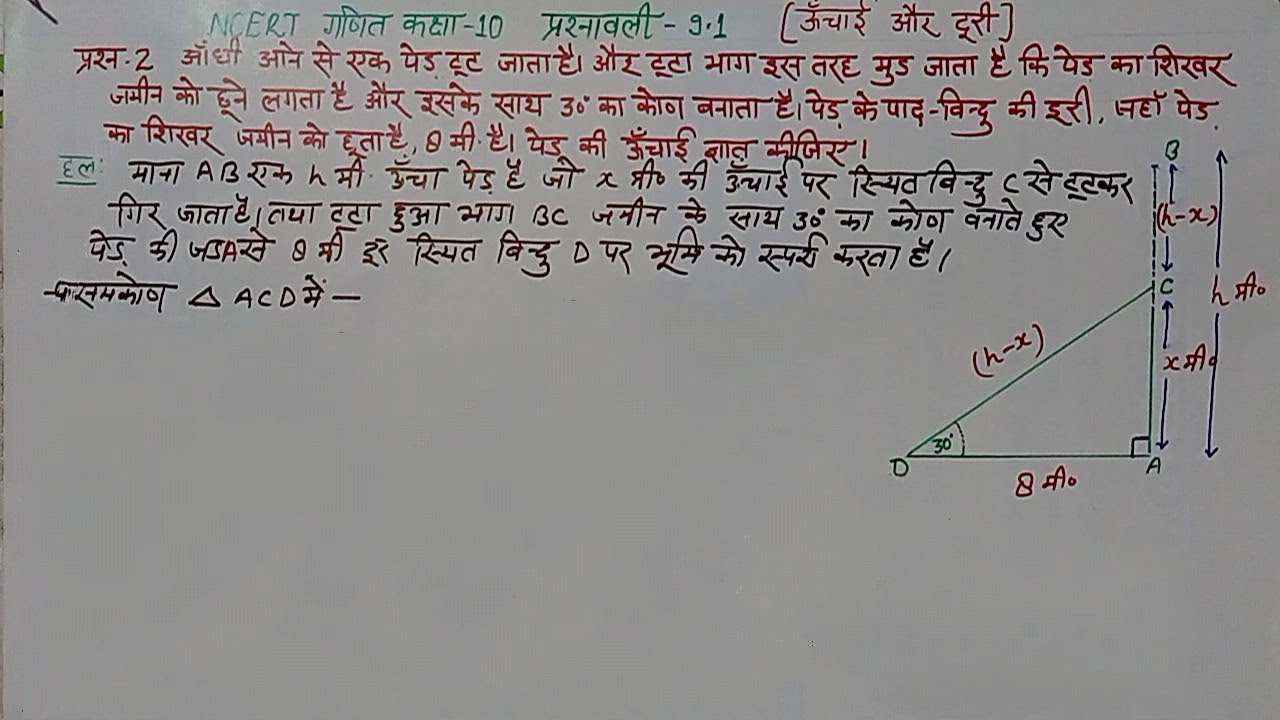 NCERT गणित कक्षा-10 प्रश्नावली - 9.1 [ऊँचाई और दूरी]
प्रश्न-2 आँधी आने से एक पेड़ टूट जाता है। और टूटा भाग इस तरह मुड जाता है कि पेड का शिखर
जमीन को छूने लगता है और इसके साथ 30° का कोण बनाता है। पेड़ के पाद-विन्दु की दूरी, जहाँ पेड़
का शिखर जमीन को छूता है, 8 मी. है। पेड़ की ऊँचाई ज्ञात कीजिए।
हल: माना AB एक h मी. ऊँचा पेड़ है जो x मी० की ऊँचाई पर स्थित विन्दु C से टूटकर
गिर जाता है। तथा टूटा हुआ भाग BC जमीन के साथ 30° का कोण बनाते हुए
पेड़ की जड A से 8 मी दूर स्थित विन्दु D पर भूमि को स्पर्श करता है।
समकोण △ ACD में —
B
(h-x)
C
h मी०
(h-x)
x मी०
30°
D
A
8 मी०